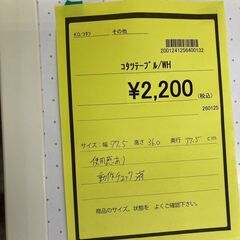 KO/コタツ その他
2001241256400132
コタツテーブル/WH
¥2,200(税込)
260125
サイズ: 幅 77.5 高さ 36.0 奥行 77.5 cm
使用感あり
動作チェック済
商品のサイズ、状態を よくご確認下さい。